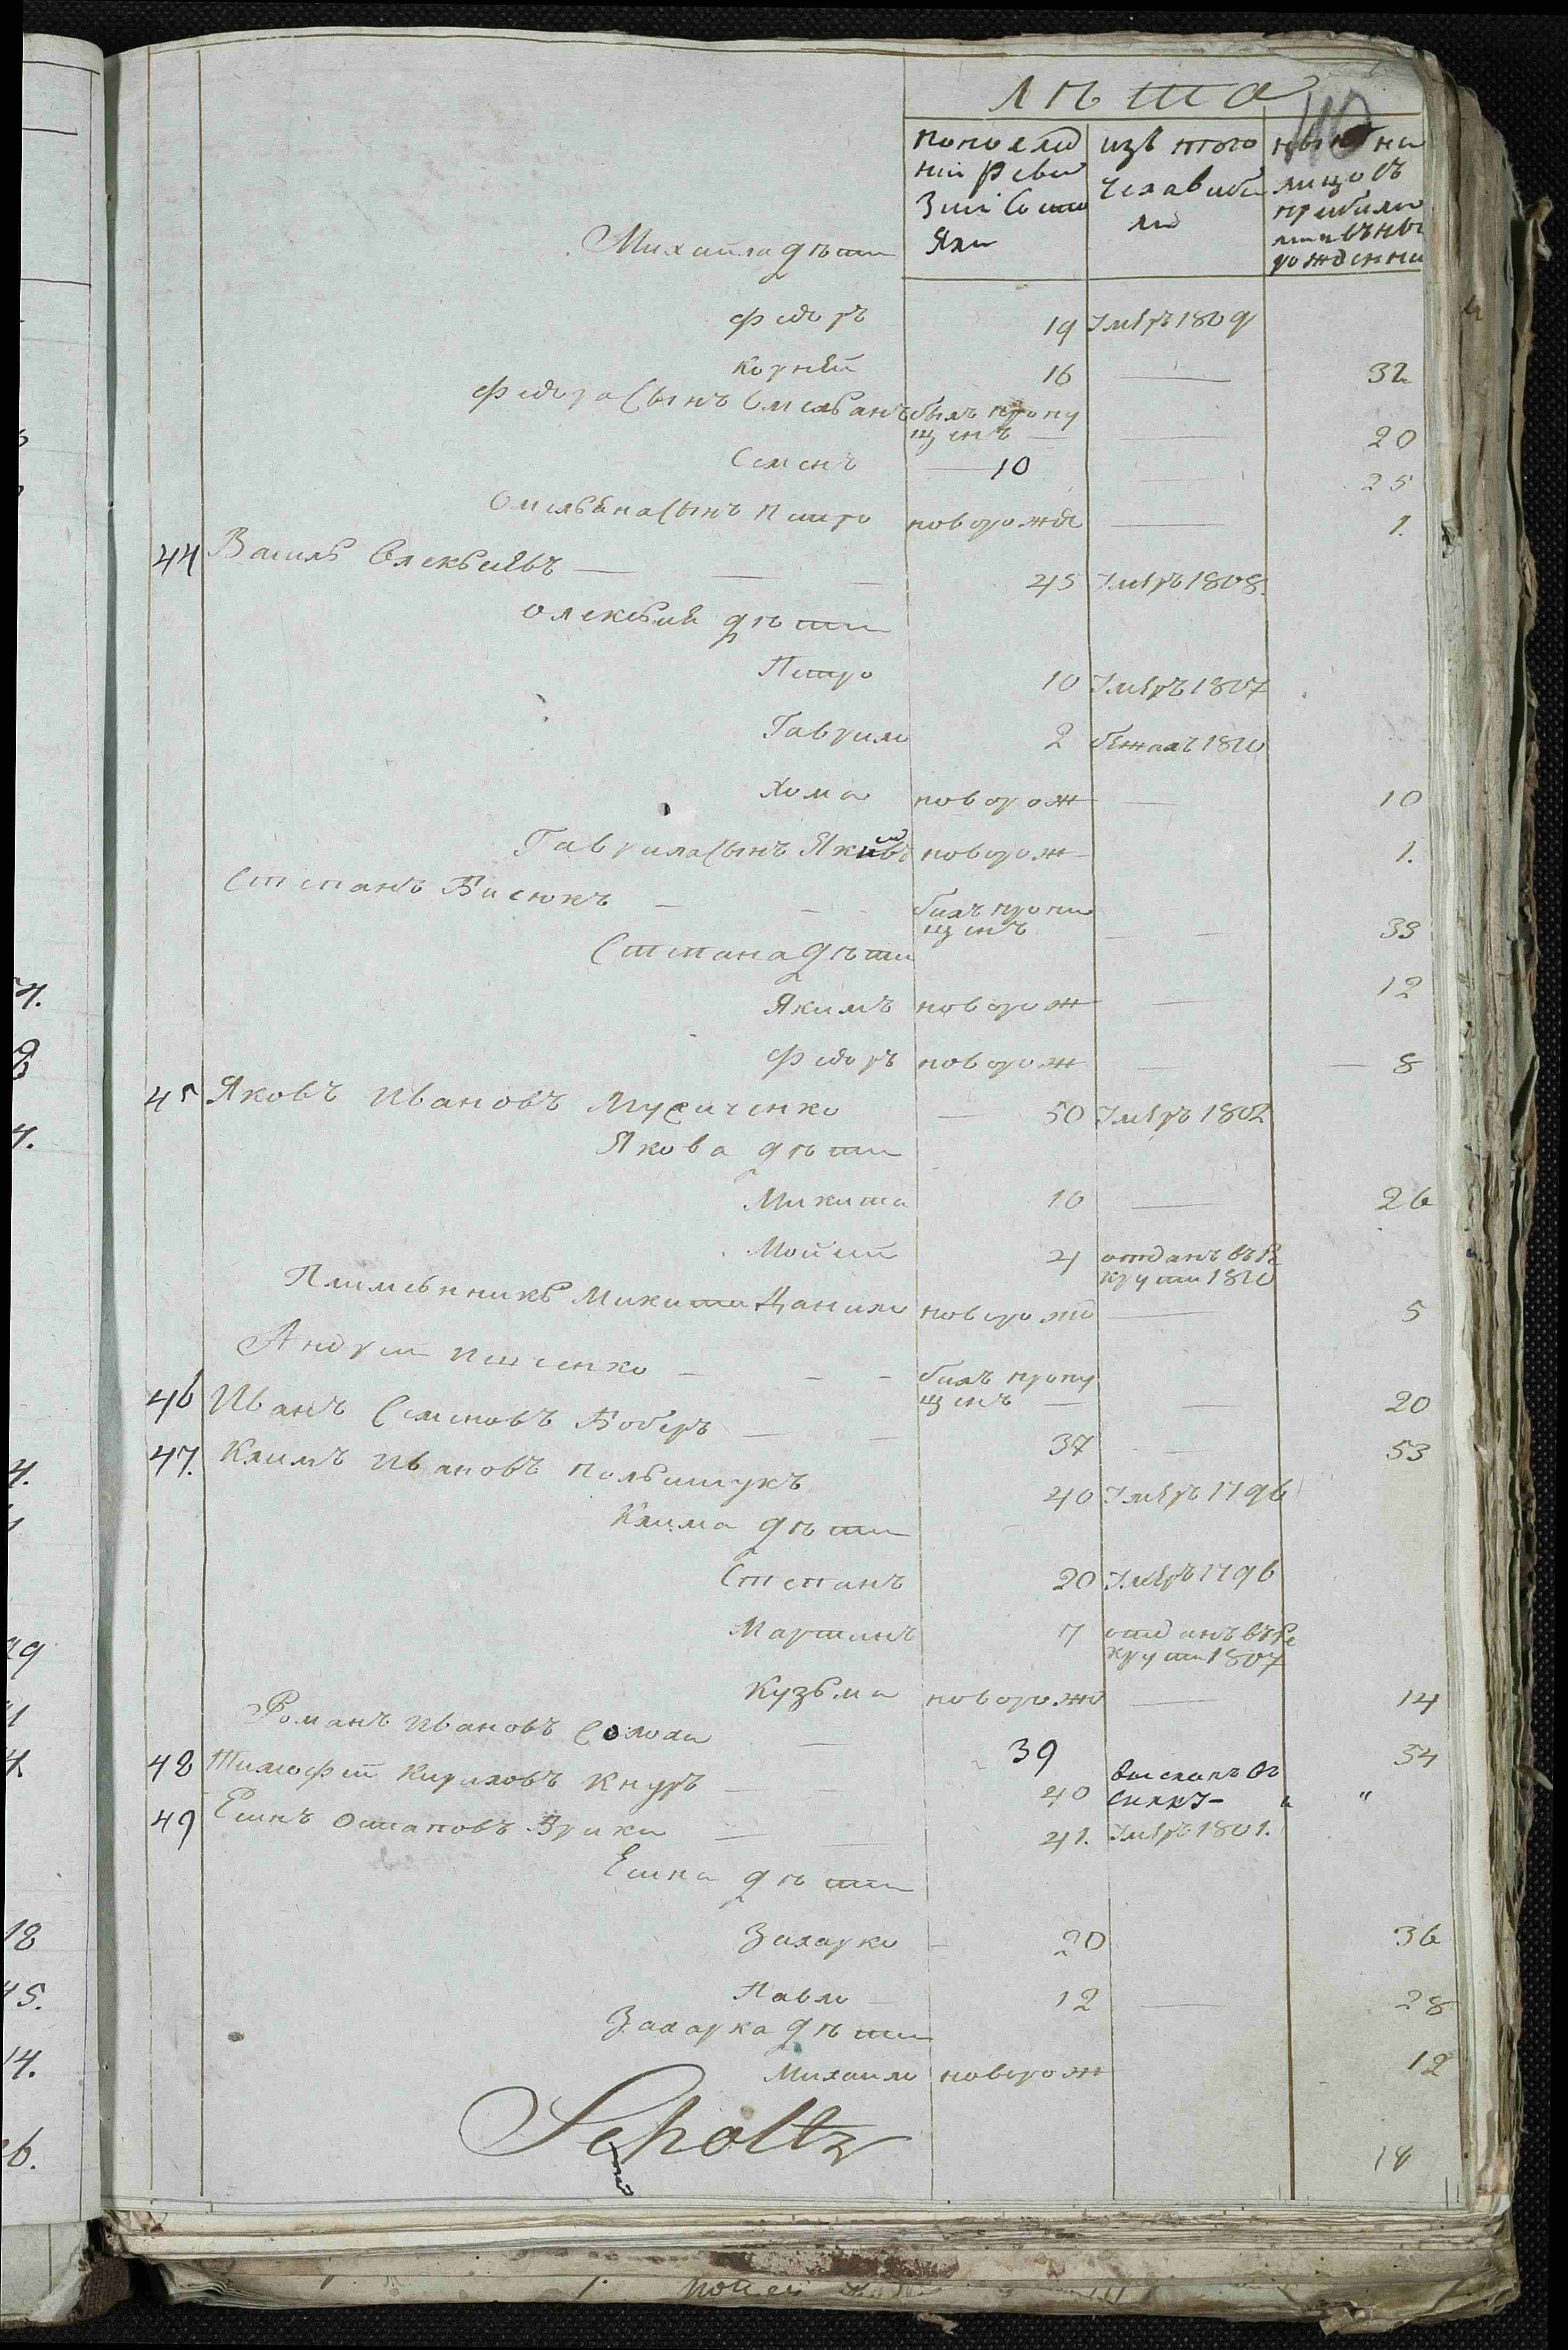 лѣта
по последней ревизіи состояли
изъ того числа выбыло
нынѣ на лицо съ прибылыми и въ нов рожденными
Михайла дѣти
Федоръ 19 Умеръ 1809
Корнѣй 16 — 32
Федора сынъ Омельянъ былъ пропущенъ — — 20
Семенъ — 10 — 25
Омельяна сынъ Петро новорожде — 1.
44 Василь Олексѣевъ — — — 45 Умеръ 1808.
Олексѣя дѣти
Петро 10 Умеръ 1807
Гаврило 2 бежалъ 1810
Хома новорож — 10
Гаврила сынъ Якимъ новорож 1.
Степанъ Бисюкъ — — былъ пропущенъ — — 33
Степана дѣти
Якимъ новорож — 12
Федоръ новорож — — 8
45 Яковъ Ивановъ — 50 Умеръ 1802
Якова дѣти
Микита 10 — 26
Мойсей 4 отданъ въ рекруты 1810
Племенникъ Микиты Данило новорожд — 5
Андрей — — — былъ пропущенъ — — 20
46 Иванъ Семеновъ Боберъ — — 37 — 53
47. Климъ Ивановъ Полѣщукъ 40 Умеръ 1796
Клима дѣти
Степанъ 20 Умеръ 1796
Мартинъ 7 отданъ въ рекруты 1807
Кузьма новорожд — 14
Романъ Ивановъ Солоха — 39 54
48 Тимофей Кириловъ Кнуръ — — 40 высланъ въ " "
49 Есипъ Остаповъ Зрика — — 41. Умеръ 1801.
Есипа дѣти
Захарко — 20 36
Павло — 12 — 28
Захарка дѣти
Михайло новорож 12
Scholtz
18